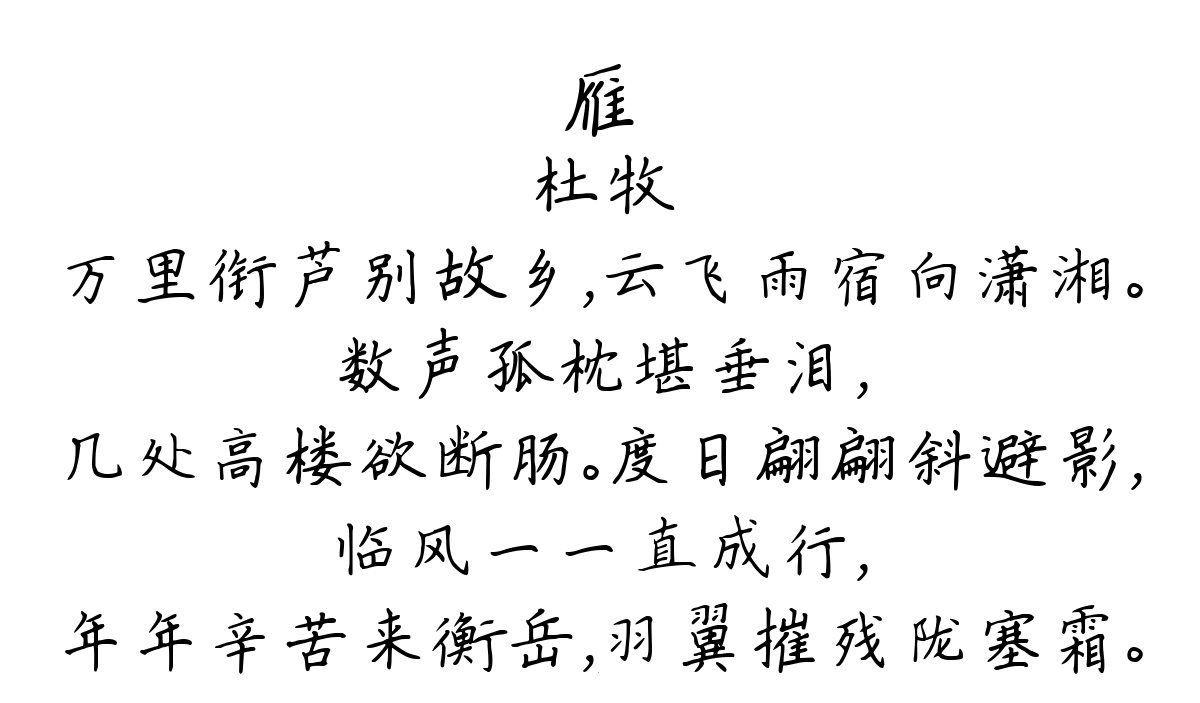 雁
杜牧
万里衔芦别故乡,云飞雨宿向潇湘。
数声孤枕堪垂泪,
几处高楼欲断肠。度日翩翩斜避影,
临风一一直成行,
年年辛苦来衡岳,羽翼摧残陇塞霜。